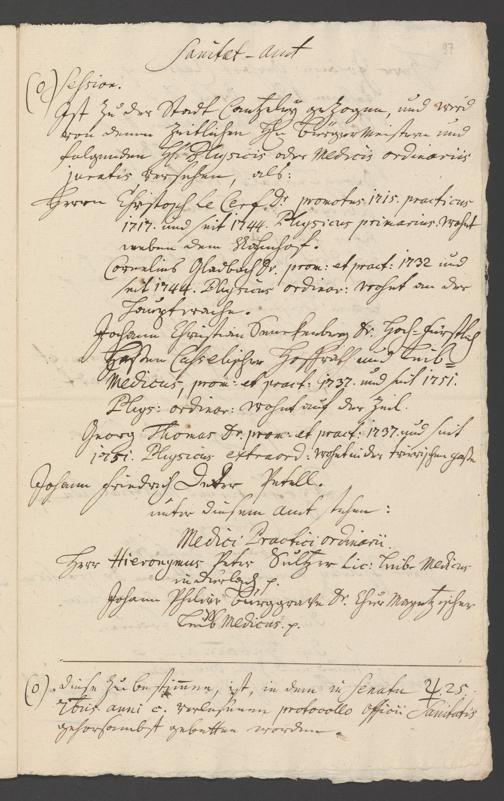 Sanitet-amt
97
(o) Session.
Ist zu der Stadt Cantzeley gezogen, und wird
von denen Zeitlichen Hh Bürgermeistern und
folgenden Hh Physicis oder Medicis ordinariis
juratis versehen, als:
Herrn Christoph le Cerf. Dr. promotus. 1715. practicus
1717. und seit 1744. Physicus primarius. wohnt
neben dem
Cornelius Gladbach Dr. prom: et pract: 1732 und
seit 1744. Physicus ordinar: wohnt an der
Hauptwache.
Johann Christian Senckenberg Dr. Hoch-fürstlich
Hessen Casselischer Hoffrath und Leib-
Medicus, prom: et pract: 1737. und seit 1751.
Phys: ordinar: wohnt auf der Zeil.
Georg Thomas Dr. prom: et pract: 1737. und seit
1751. Physicus extraord: wohnt in der trierischen gass
Johann Friedrich Petsell.
unter diesem Amt stehen:
Medici Practici ordinarii.
Herr Hieronymus Peter Sultzer Lic: Leib Medicus
in p.
Johann Philipp Burggrave Dr. Chur Mayntzischer
Leib Medicus. p.
(o). diese zu bestimmen, ist, in dem in Senatu ♃. 25.
anni c. verlesenen protocollo Officii Sanitatis
gehorsambst gebetten worden.